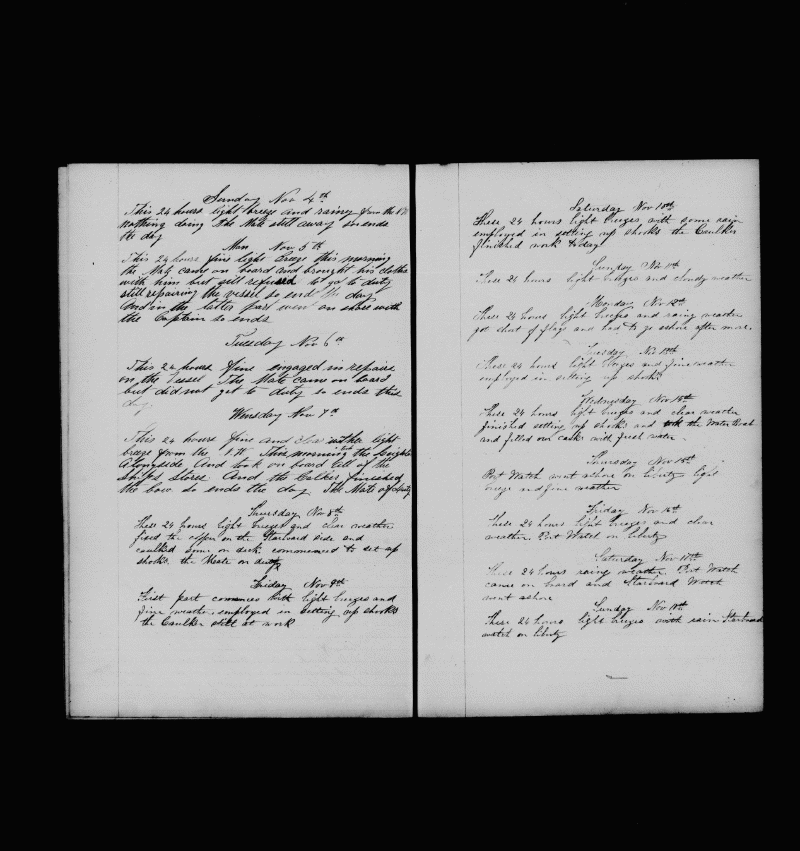 Sunday Nov 4th
This 24 hours light breeze and rainy from the
nothing doing the Mate still away so ends
the day
Mon Nov 5th
This 24 hours fine light breeze this morning
the Mate came on board and brought his clothes
with him but still refused to go to duty
still repairing the vessel so ends the day
And in the latter part went on shore with
the Captain so ends
Tuesday Nov 6th
This 24 hours fine engaged in repairs
on the Vessel The Mate came on board
but did not get to duty so ends this
day
Wensday Nov 7th
This 24 hours fine and weather light
breeze from the This morning the
Alongside And took on board all of the
Ships Stores And the Calker finished
the bow so ends the day The Mate of duty
Thursday Nov 8th
These 24 hours light breeze and clear weather
fixed the copper on the Starboard side and
caulked some on deck commenced to set up
shooks the Mate on duty
Friday Nov 9th
First part comences with light breezes and
fine weather, employed in setting up shooks
the Caulker still at work
Saturday Nov 10th
These 24 hours light breezes with some rain
employed in setting up shooks the Caulker
finished work to day
Sunday Nov 11th
These 24 hours light breezes and cloudy weather
Monday Nov 12th
These 24 hours light breezes and rainy weather
got short of flags and had to go ashore after more.
Tuesday Nov 13th
These 24 hours light breezes and fine weather
employed in setting up shooks
Wednesday Nov 14th
These 24 hours light breezes and clear weather
finished setting up shooks and took the Water Boat
and filled our casks with fresh water
Thursday Nov 15th
Port Watch went ashore on liberty light
breeze and fine weather
Friday Nov 16th
These 24 hours light breezes and clear
weather. Port Watch on liberty
Saturday Nov 17th
These 24 hours rainy weather. Port Watch
came on board and Starboard Watch
went ashore
Sunday Nov 18th
These 24 hours light breezes with rain Starboard
watch on liberty